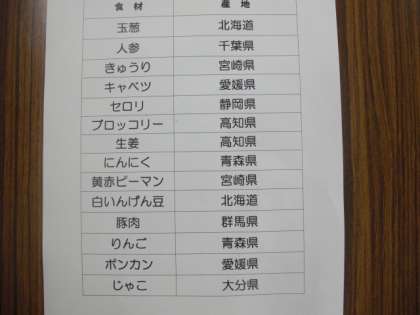 食材 産地
玉葱 北海道
人参 千葉県
きゅうり 宮崎県
キャベツ 愛媛県
セロリ 静岡県
ブロッコリー 高知県
生姜 高知県
にんにく 青森県
黄赤ピーマン 宮崎県
白いんげん豆 北海道
豚肉 群馬県
りんご 青森県
ポンカン 愛媛県
じゃこ 大分県